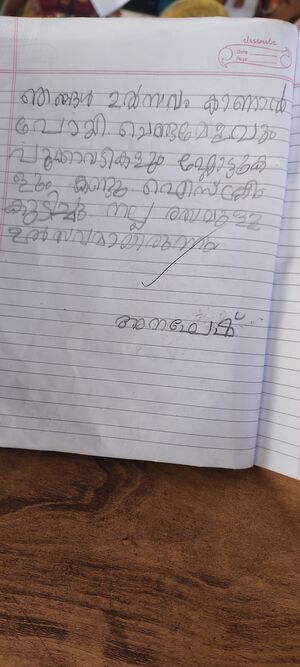 classmate
Date
Page
ഞങ്ങൾ ഉൽസവം കാണാൻ
പോയി ചെണ്ടമേളവും
പൂക്കാവടികളും ഫ്ലോട്ടുക
ളും കണ്ടു ഐസ്ക്രീം
കുടിച്ചു നല്ല രസമുള്ള
ഉൽസവമായിരുന്നു